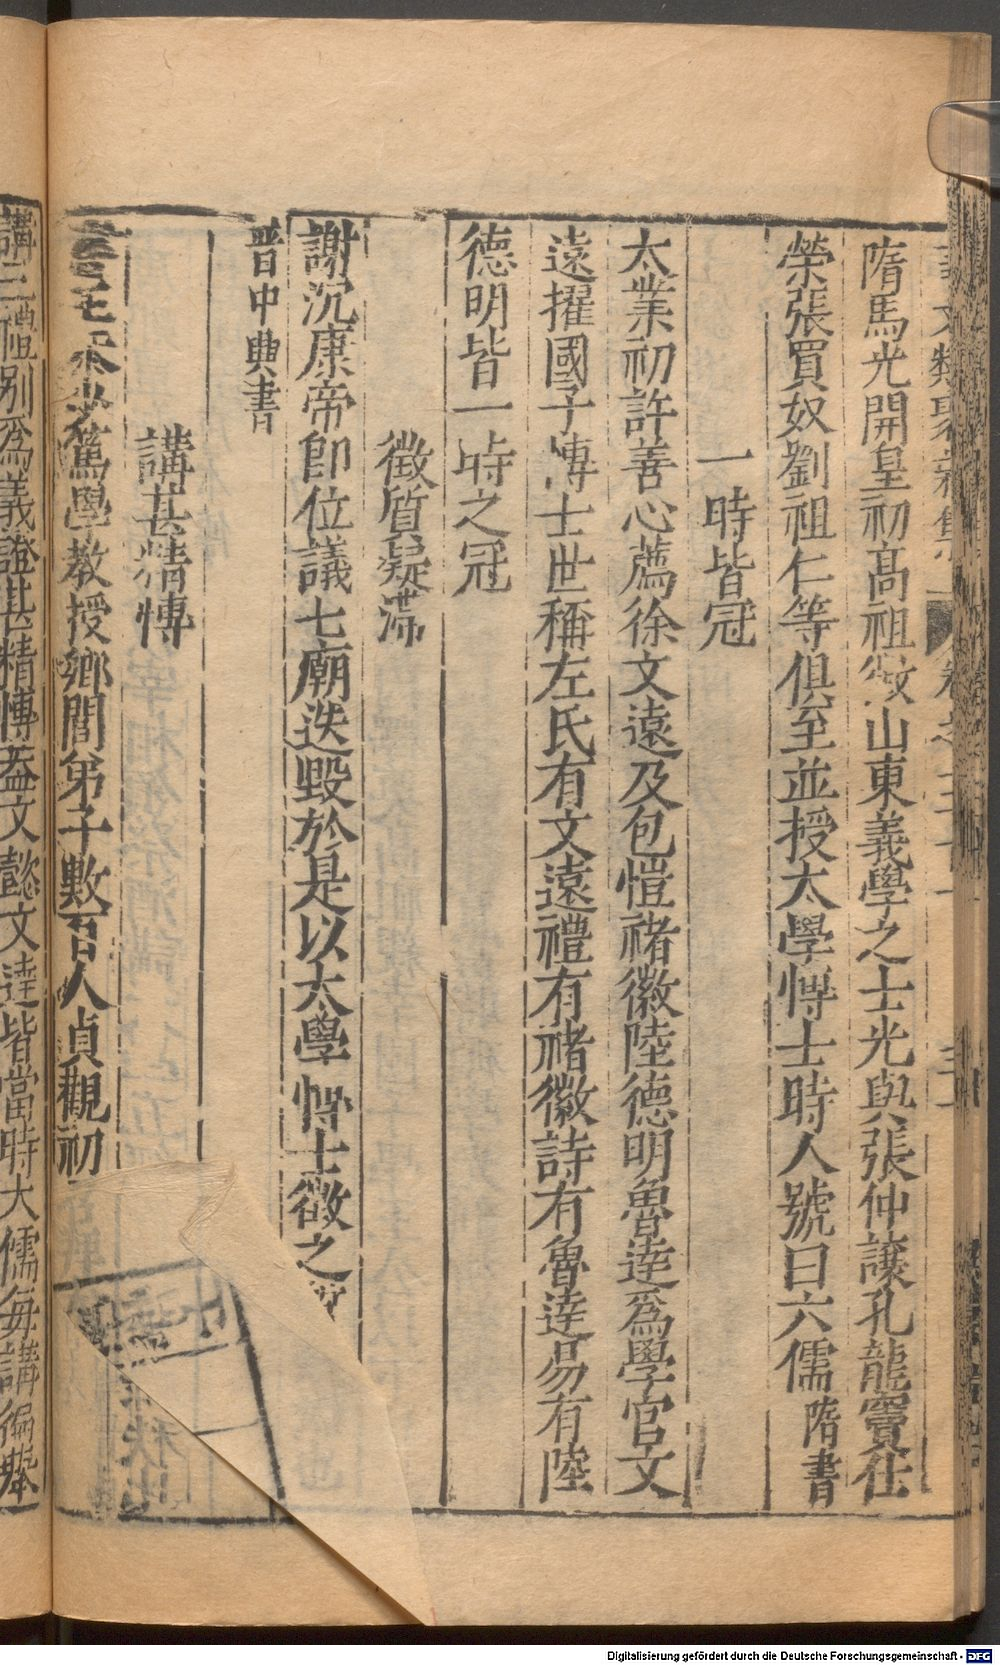 隋馬光開皇初髙祖徴山東義學之士光與張仲譲孔龍竇仕
榮張買奴劉祖仁等俱至並授太學博士時人號曰六儒隋書
一時皆冠
大業初許善心薦徐文遠及包愷禇徽陸德明魯逹爲學官文
遠擢國子博士世稱左氏有文遠禮有禇徽詩有魯逹易有陸
德明皆一時之冠
徴質疑滯
謝沉康帝即位議七廟迭毀於是以太學博士徴之
晉中興書
講甚精博
篤學教授鄉閭弟子數百人貞觀初
講三禮别爲義證甚精博葢文懿文逹皆當時大儒每講徧舉
Digitalisierung gefördert durch die Deutsche Forschungsgemeinschaft - DFG